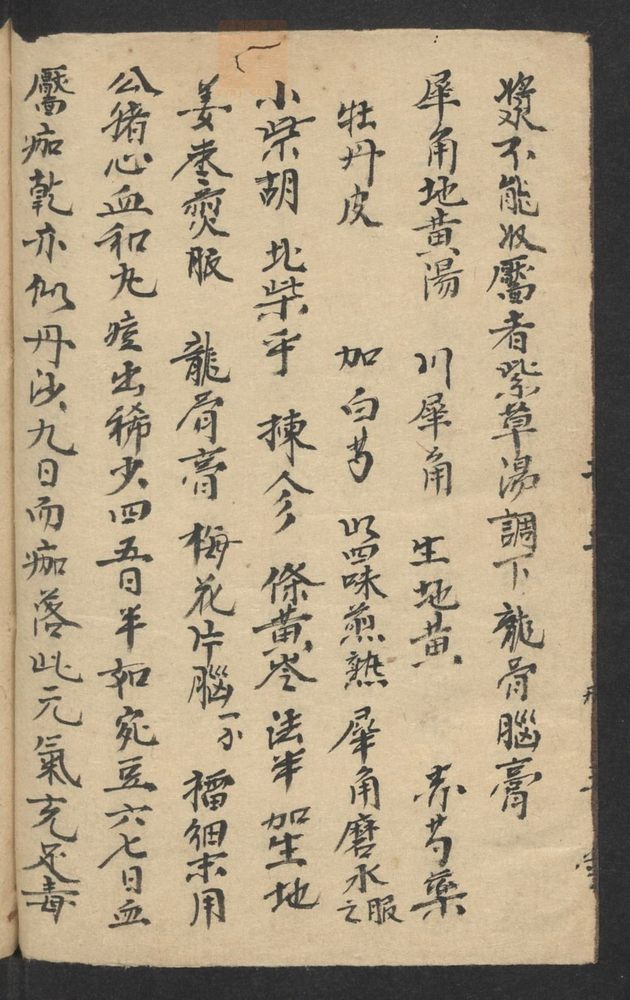 漿不能收靨者紫草湯調下龍骨腦膏
犀角地黃湯 川犀角 生地黃 赤芍藥
牡丹皮 加白芍 以四味煎熟 犀角磨水服之
小柴胡 北柴乎 揀參 條黃芩 法半 加生地
姜枣煎服 龍骨膏 梅花片腦一分 擂細末用
公猪心血和丸 痘出稀少四五日半如宛豆六七日血
靨痂乾亦似丹沙九日而痂落此元氣充足毒